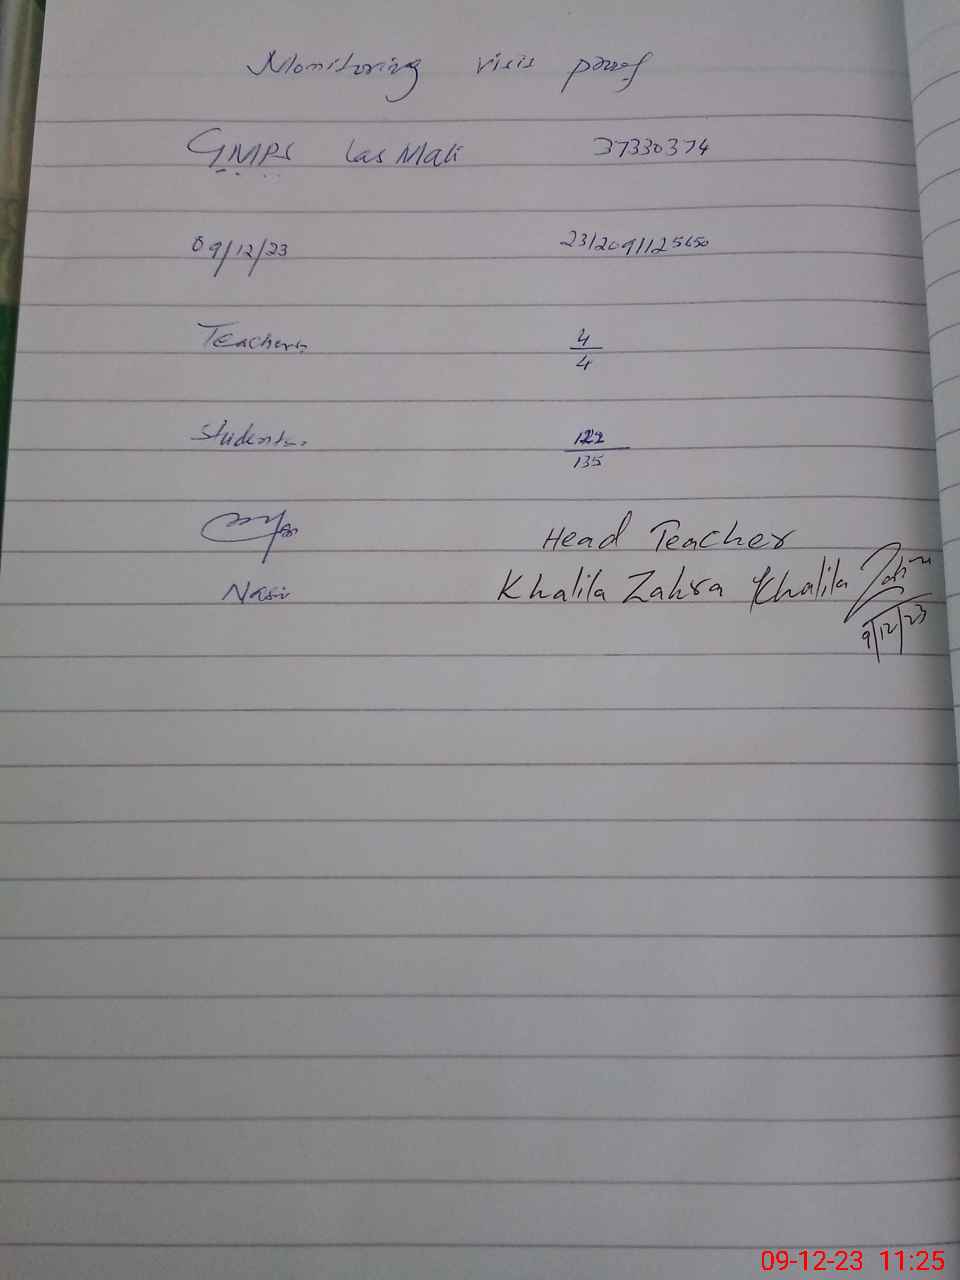 Monitoring visit proof
GMPS Las Mali 37330374
09/12/23 2312091125650
Teachers 4/4
Students. 122/135
Head Teacher
Nasir Khalila Zahra Khalila Zahra
9/12/23
09-12-23 11:25